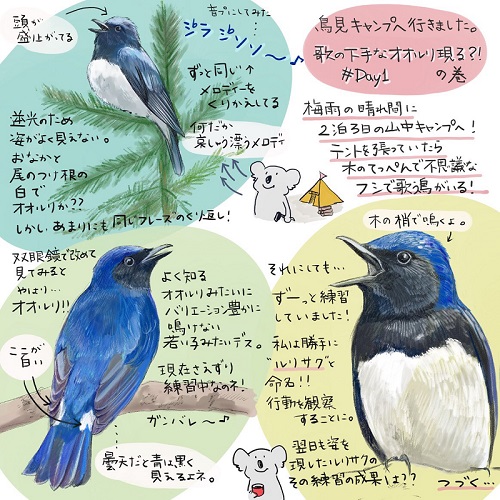 鳥見キャンプへ行きました。
歌の下手なオオルリ現る?!
#Day1 の巻
梅雨の晴れ間に
2泊3日の山中キャンプへ!
テントを張っていたら
木のてっぺんで不思議な
フシで歌う鳥がいる!
頭が
盛上がってる
音プにしてみた…
ジラジソソ〜♪
ずっと同じ↑
メロディーを
くりかえしてる
何だか
哀しゅう漂うメロディ
逆光のため
姿がよく見えない。
おなかと
尾のつけ根の
白で
オオルリか??
しかしあまりにも同じフレーズのくり返し!
双眼鏡で改めて
見てみると
やはり…
オオルリ!!
ここが
白い
よく知る
オオルリみたいに
バリエーション豊かに
鳴けない
若いるみたいデス。
現在さえずり
練習中なのネ!
ガンバレ〜♪
曇天だと青は黒く
見えるよネ。
木の梢で鳴くよ。
それにしても…
ずーっと練習
していました!
私は勝手に
“ルリサグ”と
命名!!
行動を観察
することに。
翌日も姿を
現したルリサクの
その練習の成果は??
つづく…